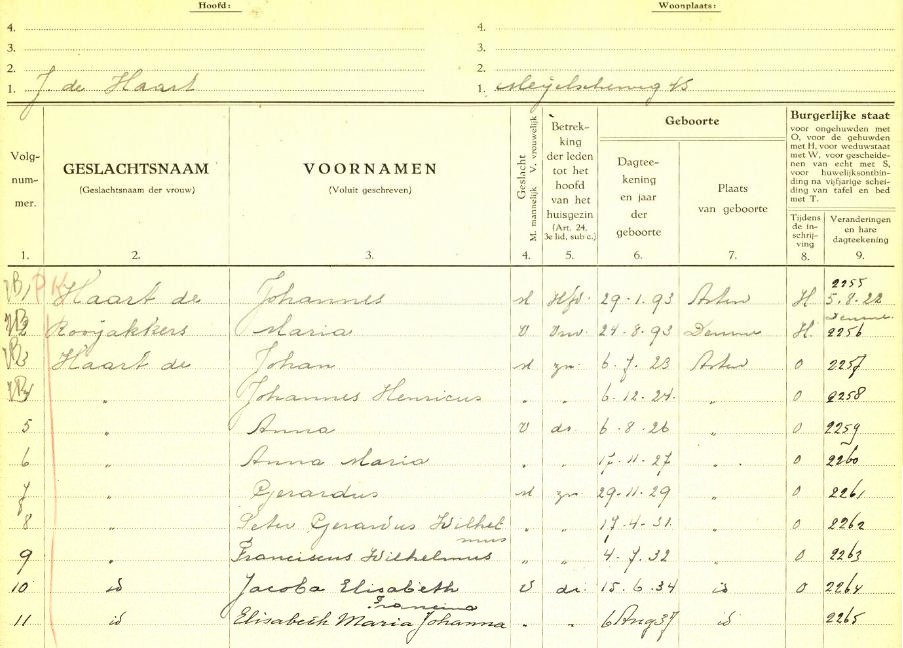 Hoofd: Woonplaats:
4. 4.
3. 3.
2. 2.
1. J. de Haart 1. Meijelscheweg 45
Volg-
num-
mer.
GESLACHTSNAAM
(Geslachtsnaam der vrouw)
VOORNAMEN
(Voluit geschreven)
Geslacht
M. mannelijk V. vrouwelijk
Betrek-
king
der leden
tot het
hoofd
van het
huisgezin
(Art. 24,
3e lid, sub c.)
Geboorte
Dagtee-
kening
en jaar
der
geboorte
Plaats
van geboorte
Burgerlijke staat
voor ongehuwden met
O, voor de gehuwden
met H, voor weduwstaat
met W, voor gescheide-
nen van echt met S,
voor huwelijksontbin-
ding na vijfjarige schei-
ding van tafel en bed
met T.
Tijdens
de in-
schrij-
ving
Veranderingen
en hare
dagteekening
1. 2. 3. 4. 5. 6. 7. 8. 9.
1 PK Haart de Johannes M Hfd. 29-1.93 Asten H 2255 5.8.22 Deurne
2 Rooijakkers Maria V Vrw 24-8-93 Deurne H. 2256
3 Haart de Johan M zn. 6-7-23 Asten O 2257
4 " Johannes Henricus " " 6-12-24. " O 2258
5 " Anna V dr. 6-8-26 " O 2259
6 " Anna Maria " " 17-11-27 " O 2260
7 " Gerardus M zn 29-11-29 " O 2261
8 " Peter Gerardus Wilhelmus " " 17-4-31. " O 2262
9 " Franciscus Wilhelmus " " 4-7.32 " O 2263
10 id Jacoba Elisabeth V dr. 15.6.34 id O 2264
11 id Elisabeth Maria Johanna Francina " " 6 Aug 37 id 2265